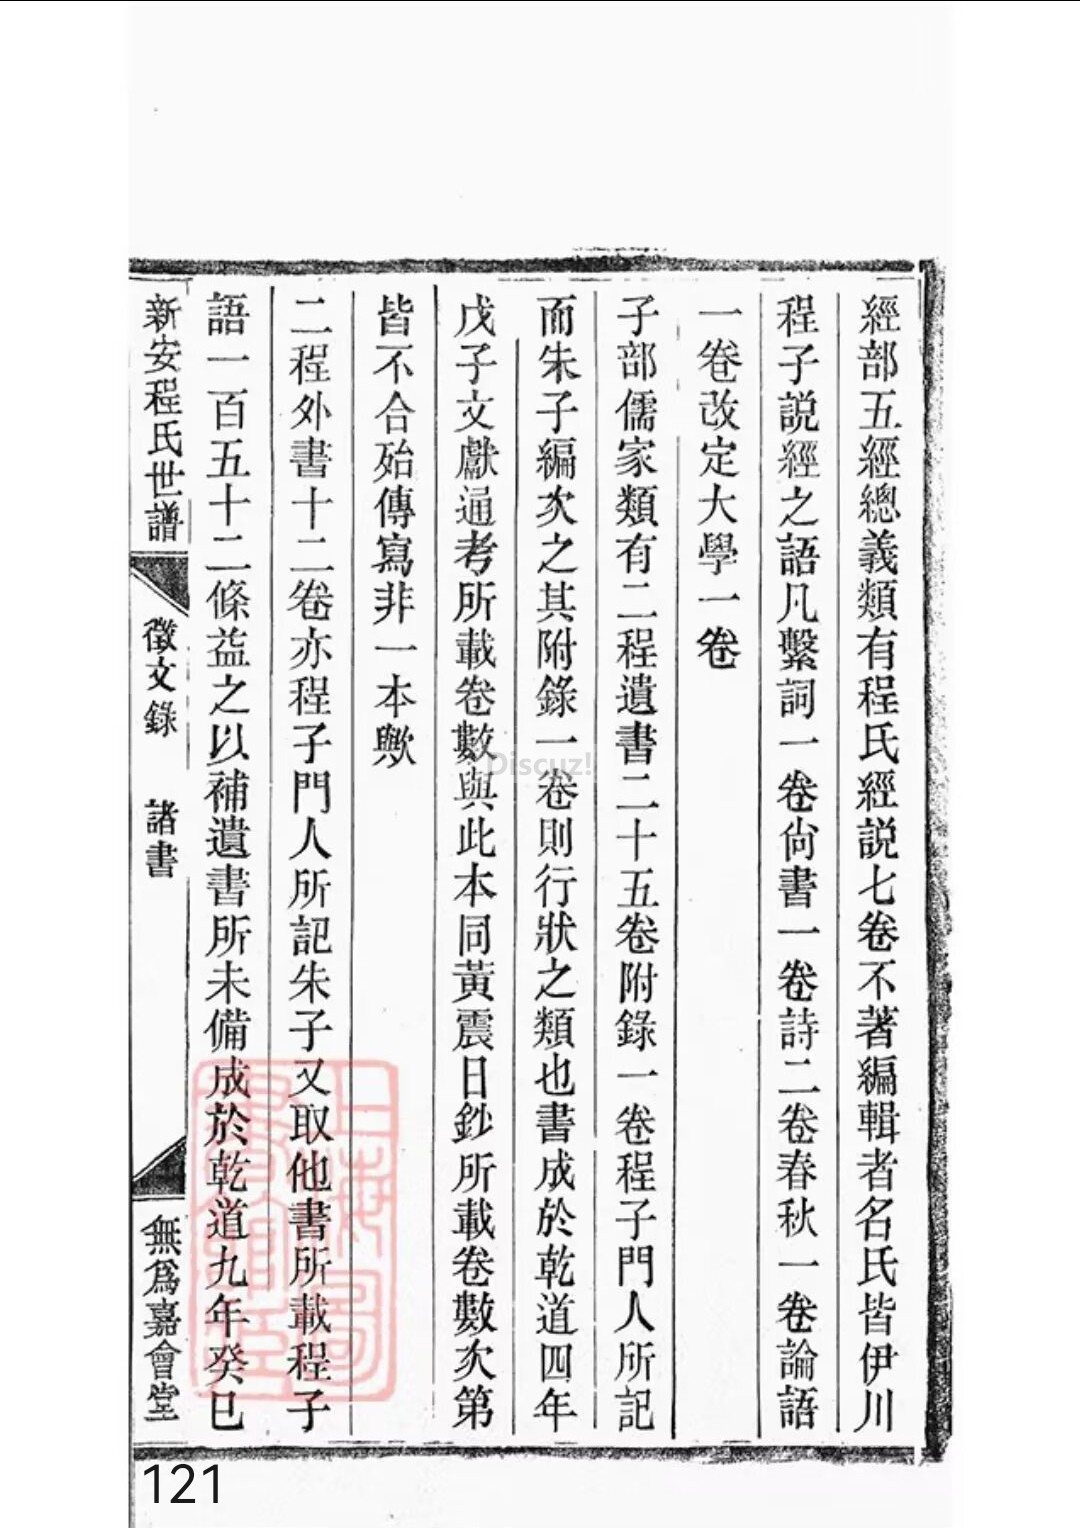 經部五經總義類有程氏經説七卷不著編輯者名氏皆伊川
程子説經之語凡繫詞一卷尙書一卷詩二卷春秋一卷論語
一卷改定大學一卷
子部儒家類有二程遺書二十五卷附錄一卷程子門人所記
而朱子編次之其附錄一卷則行狀之類也書成於乾道四年
戊子文獻通考所載卷數與此本同黃震日鈔所載卷數次第
皆不合殆傳寫非一本歟
二程外書十二卷亦程子門人所記朱子又取他書所載程子
語一百五十二條益之以補遺書所未備成於乾道九年癸巳
新安程氏世譜
徵文錄 諸書
無爲嘉會堂
上海圖書館藏
Discuz!
121